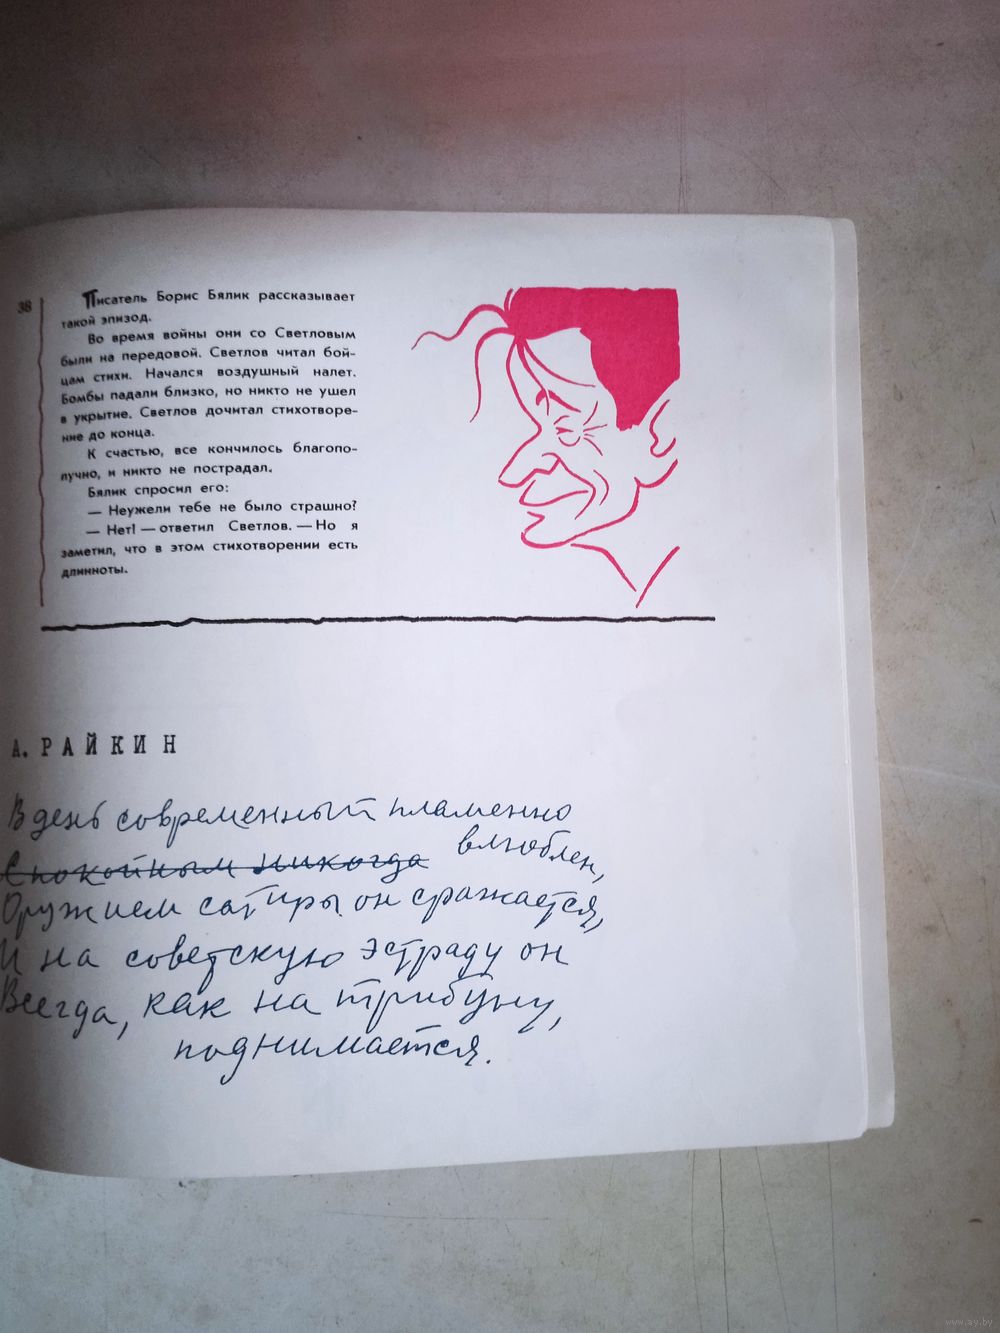 38
Писатель Борис Бялик рассказывает
такой эпизод.
Во время войны они со Светловым
были на передовой. Светлов читал бой-
цам стихи. Начался воздушный налет.
Бомбы падали близко, но никто не ушел
в укрытие. Светлов дочитал стихотворе-
ние до конца.
К счастью, все кончилось благопо-
лучно, и никто не пострадал.
Бялик спросил его:
— Неужели тебе не было страшно?
— Нет! — ответил Светлов. — Но я
заметил, что в этом стихотворении есть
длинноты.
А. РАЙКИН
В день современный пламенно
влюблен,
Спокойным никогда
Оружием сатиры он сражается,
И на советскую эстраду он
Всегда, как на трибуну,
поднимается.
www.ay.by